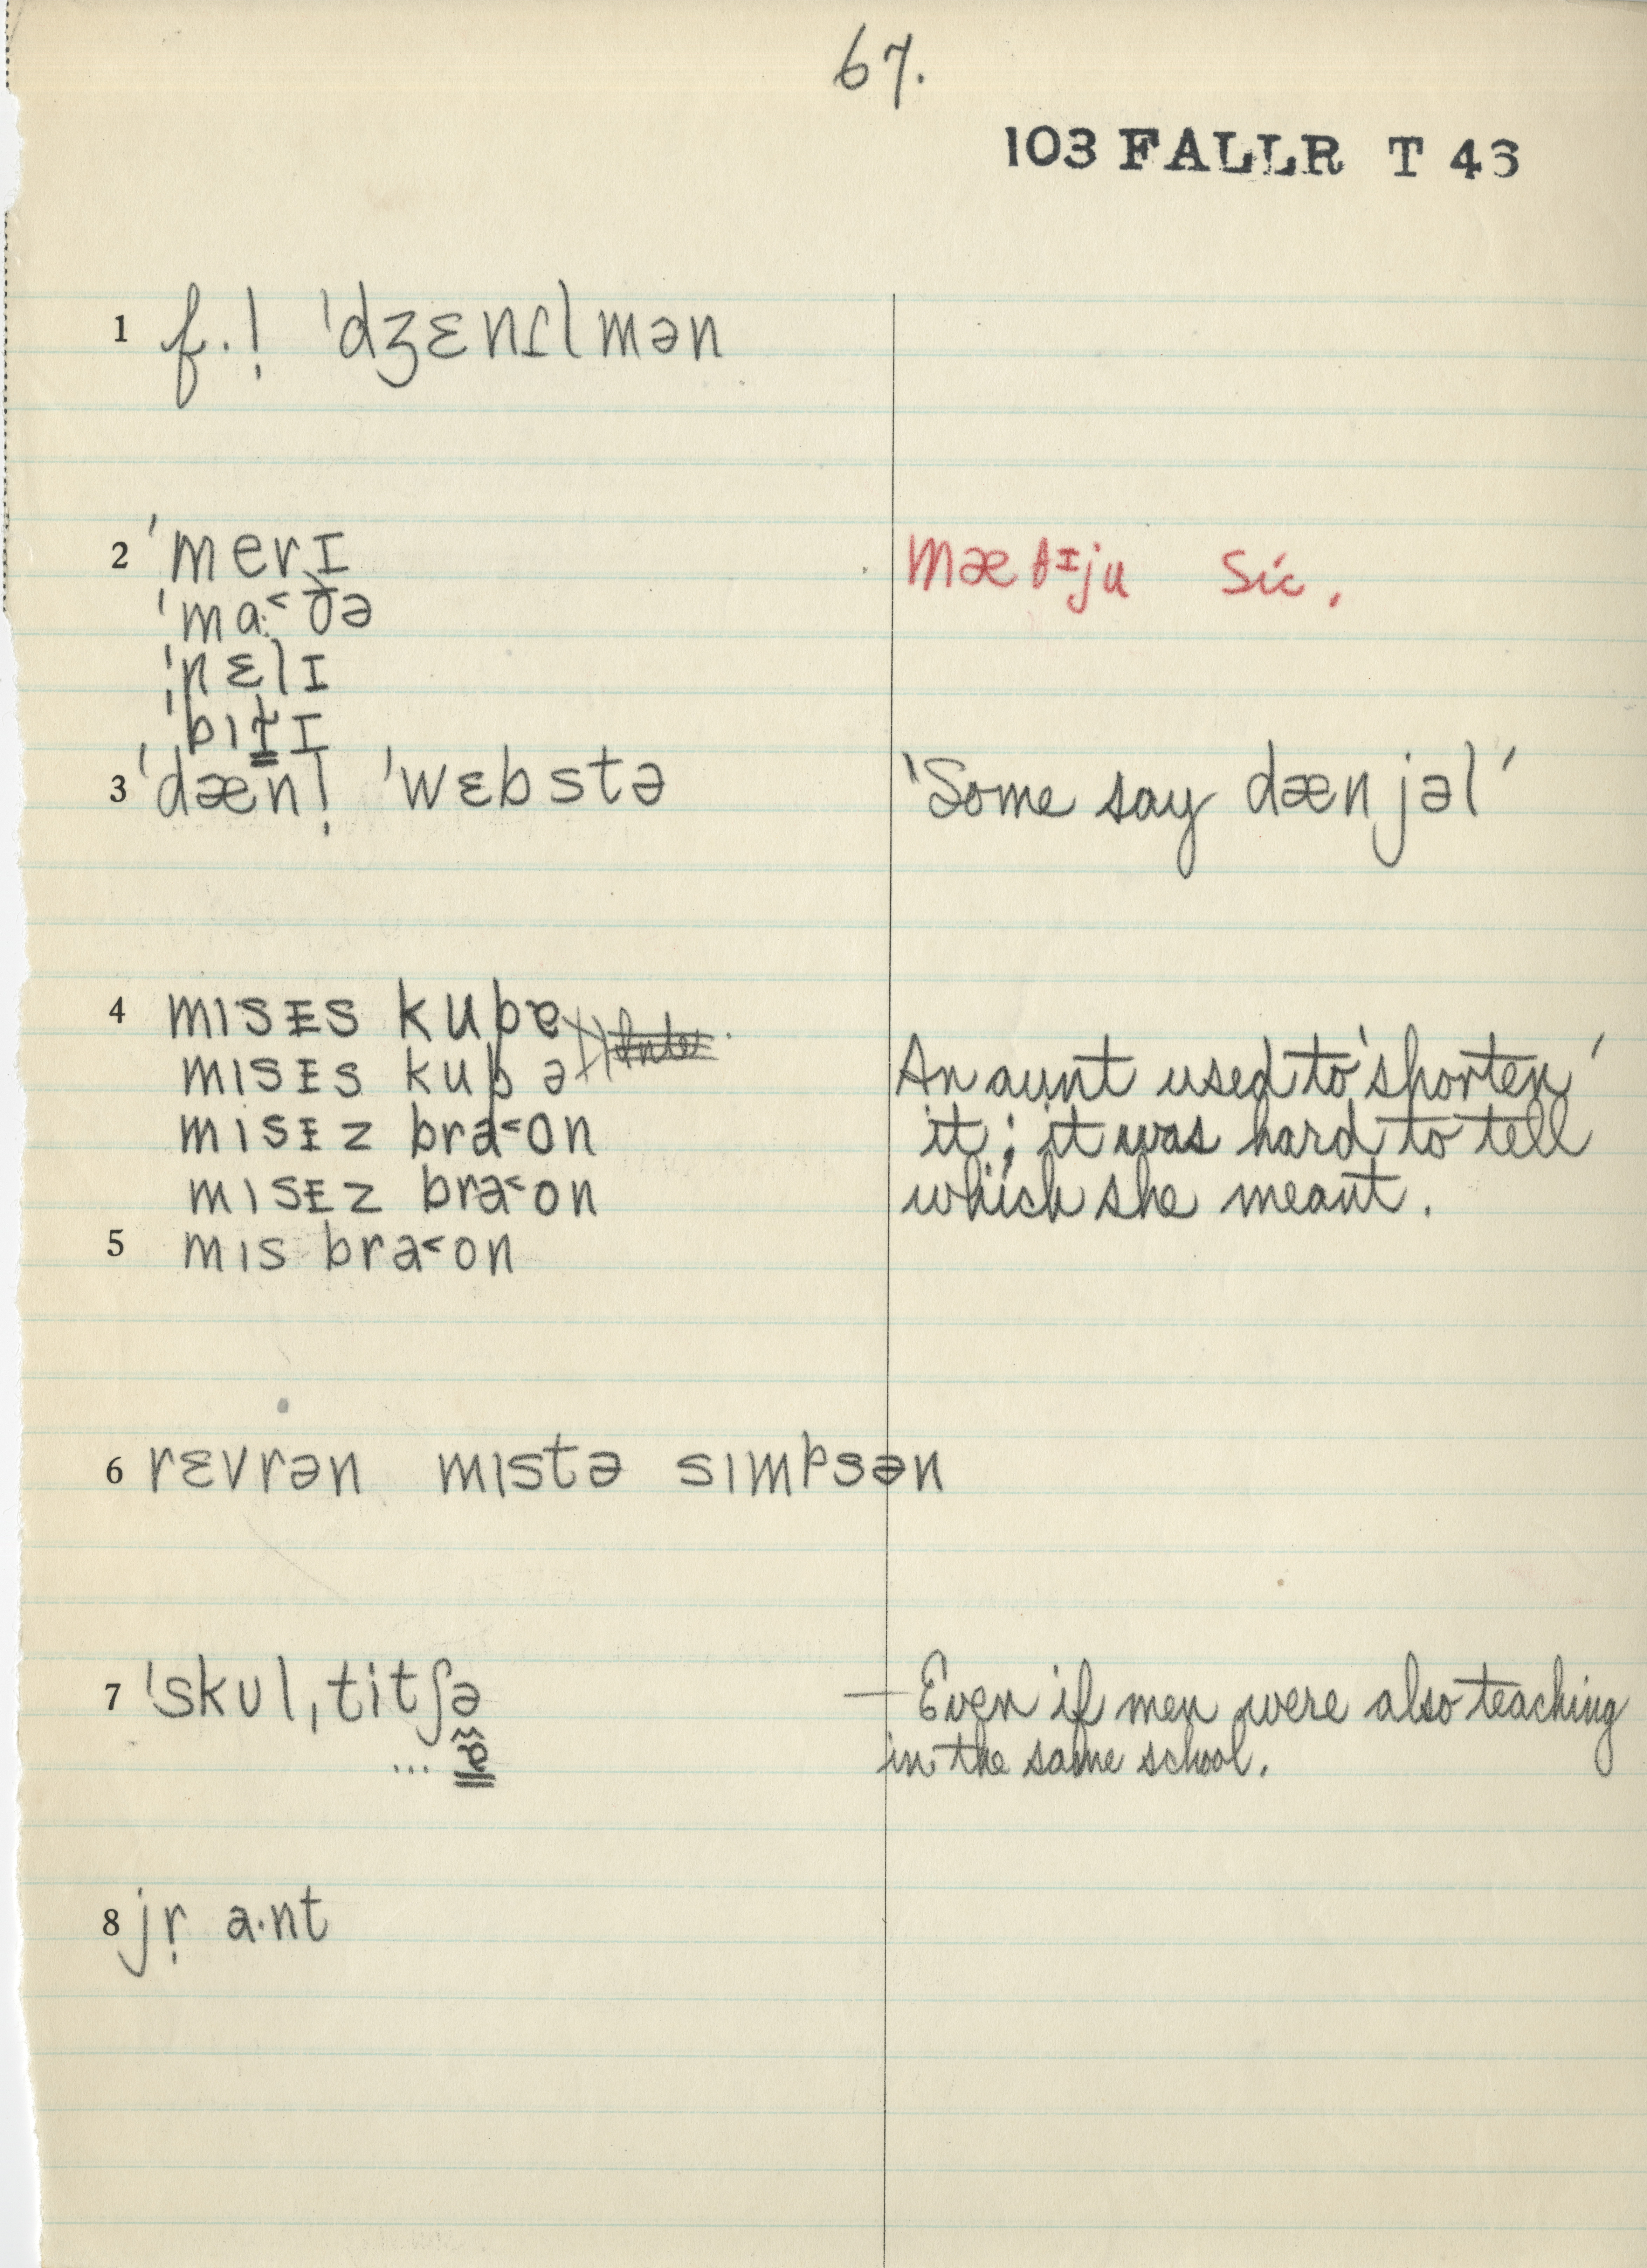 67.
103 FALLR T 43
1 f.! ˈdʒɛnɪlmən
2 ˈmerɪ
mætɪju sic.
ˈma˂ðə
ˈnɛlɪ
ˈbɪt̬ɪ
3 ˈdænl̩ ˈwɛbstə
'Some say dænjəl'
4 mɪsɪs kupɐ
mɪsɪs kupə
An aunt used to 'shorten'
mɪsɪz bra˂on
it; it was hard to tell
mɪsɪz bra˂on
which she meant.
5 mɪs bra˂on
6 rɛvrən mɪstə sɪmpsən
7 ˈskulˌtitʃə
— Even if men were also teaching
... ɐ
in the same school.
8 jr̩ a·nt